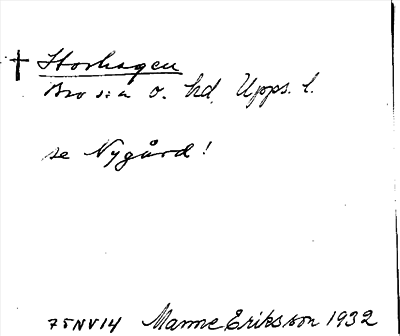 † Storhagen
Bro s:n o. hd, Upps. l.
se Nygård!
75NV14 Manne Eriksson 1932